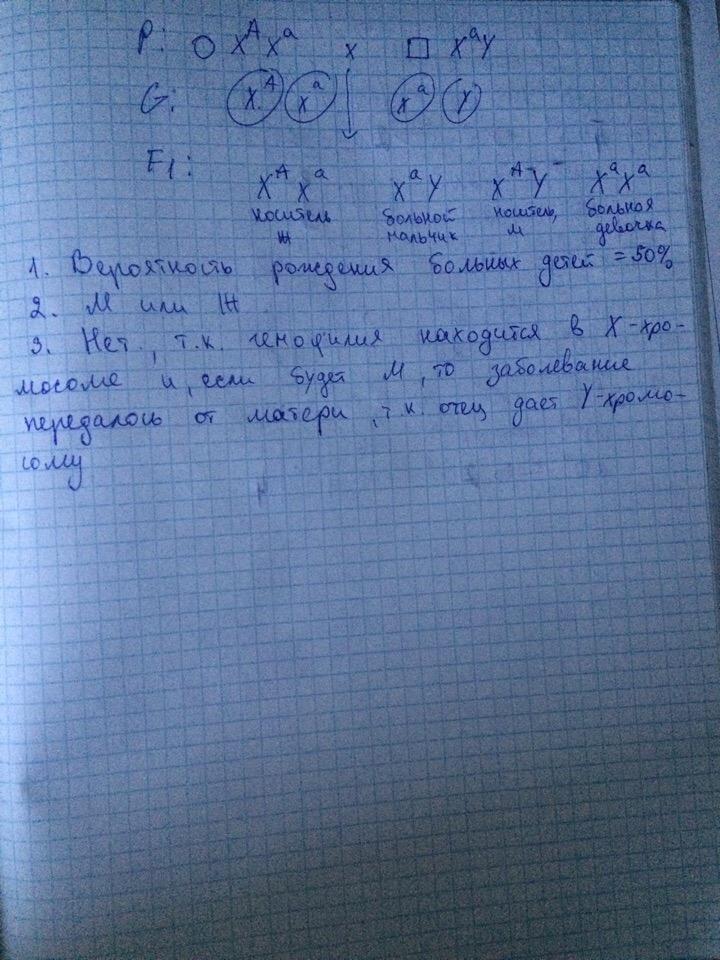 P: ○ Xᴬ Xᵃ x □ XᵃY
G: Xᴬ Xᵃ Xᵃ Y
F1:
XᴬXᵃ XᵃY XᴬY XᵃXᵃ
носитель больной носитель, больная
ж мальчик м девочка
1. Вероятность рождения больных детей = 50%
2. М или Ж
3. Нет, т.к. гемофилия находится в X-хро-
мосоме и, если будет М, то заболевание
передалось от матери, т.к. отец дает Y-хромо-
сому